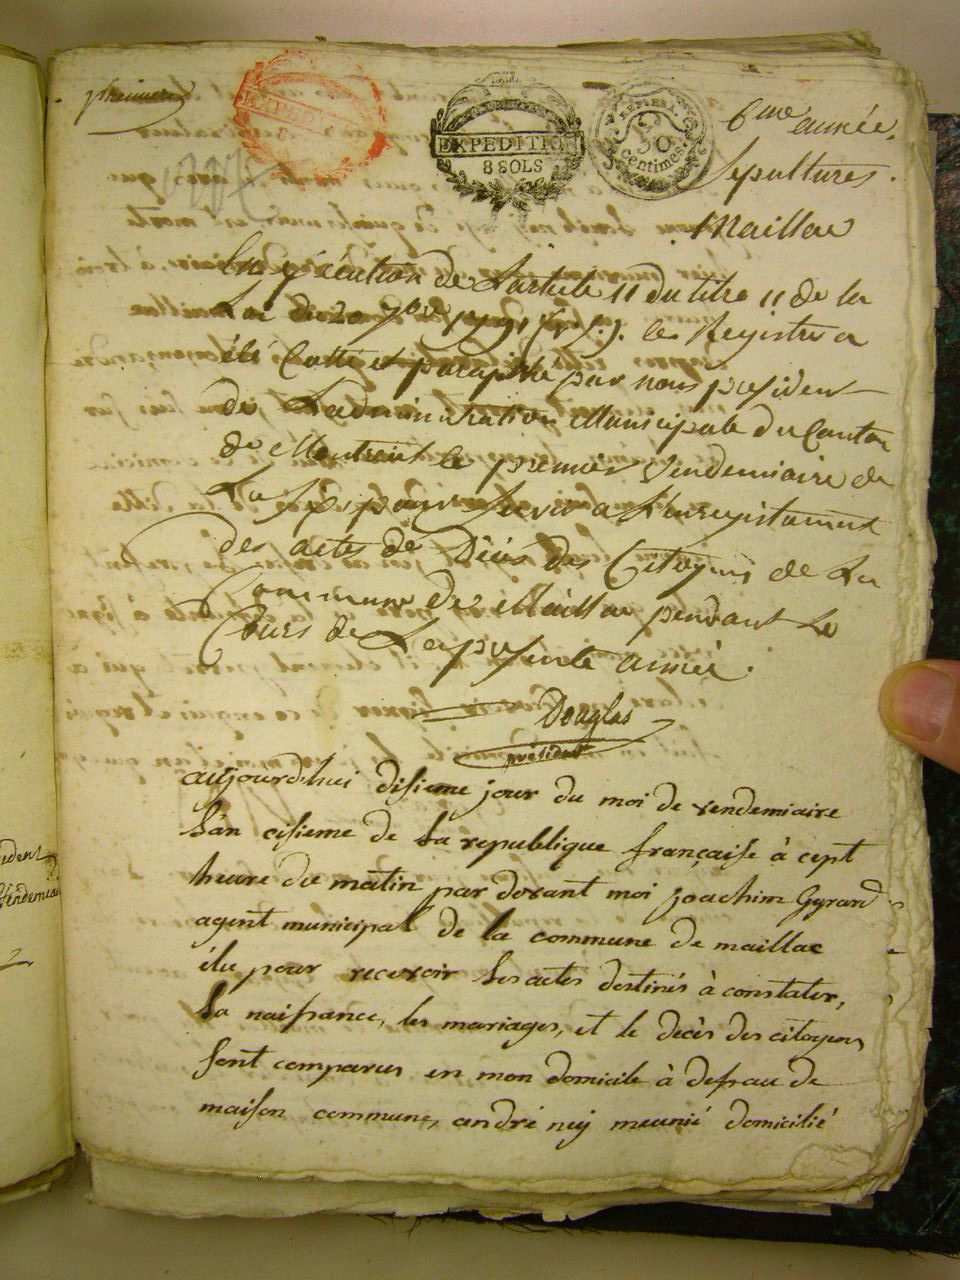 premiere
EXPEDITION
8 SOLS
50
centimes
6me année
Sépultures
Maillac
En exécution de L'article 11 du titre 11 de la
Loi du 20 7bre 1791 (v.s.). le Registre a
été Cotté et paraphé par nous president
de L'administration Municipale du Canton
de le premier Vendemiaire de
La pour Servir a L'enregistrement
des actes de Décès des Citoyens de La
Commune de Maillac pendant Le
Cours de La presente année.
Douglas
président
aujourd'hui disieme jour du moi de vendemiaire
l'an cisieme de la republique française à cept
heure du matin par devant moi joachim Gyrard
agent municipal de la commune de maillac
élu pour recevoir les actes destinés à constater,
la naissance, les mariages, et le décès des citoyens
sont comparus en mon domicile à defrau de
maison commune, andré nij meunié domicilié